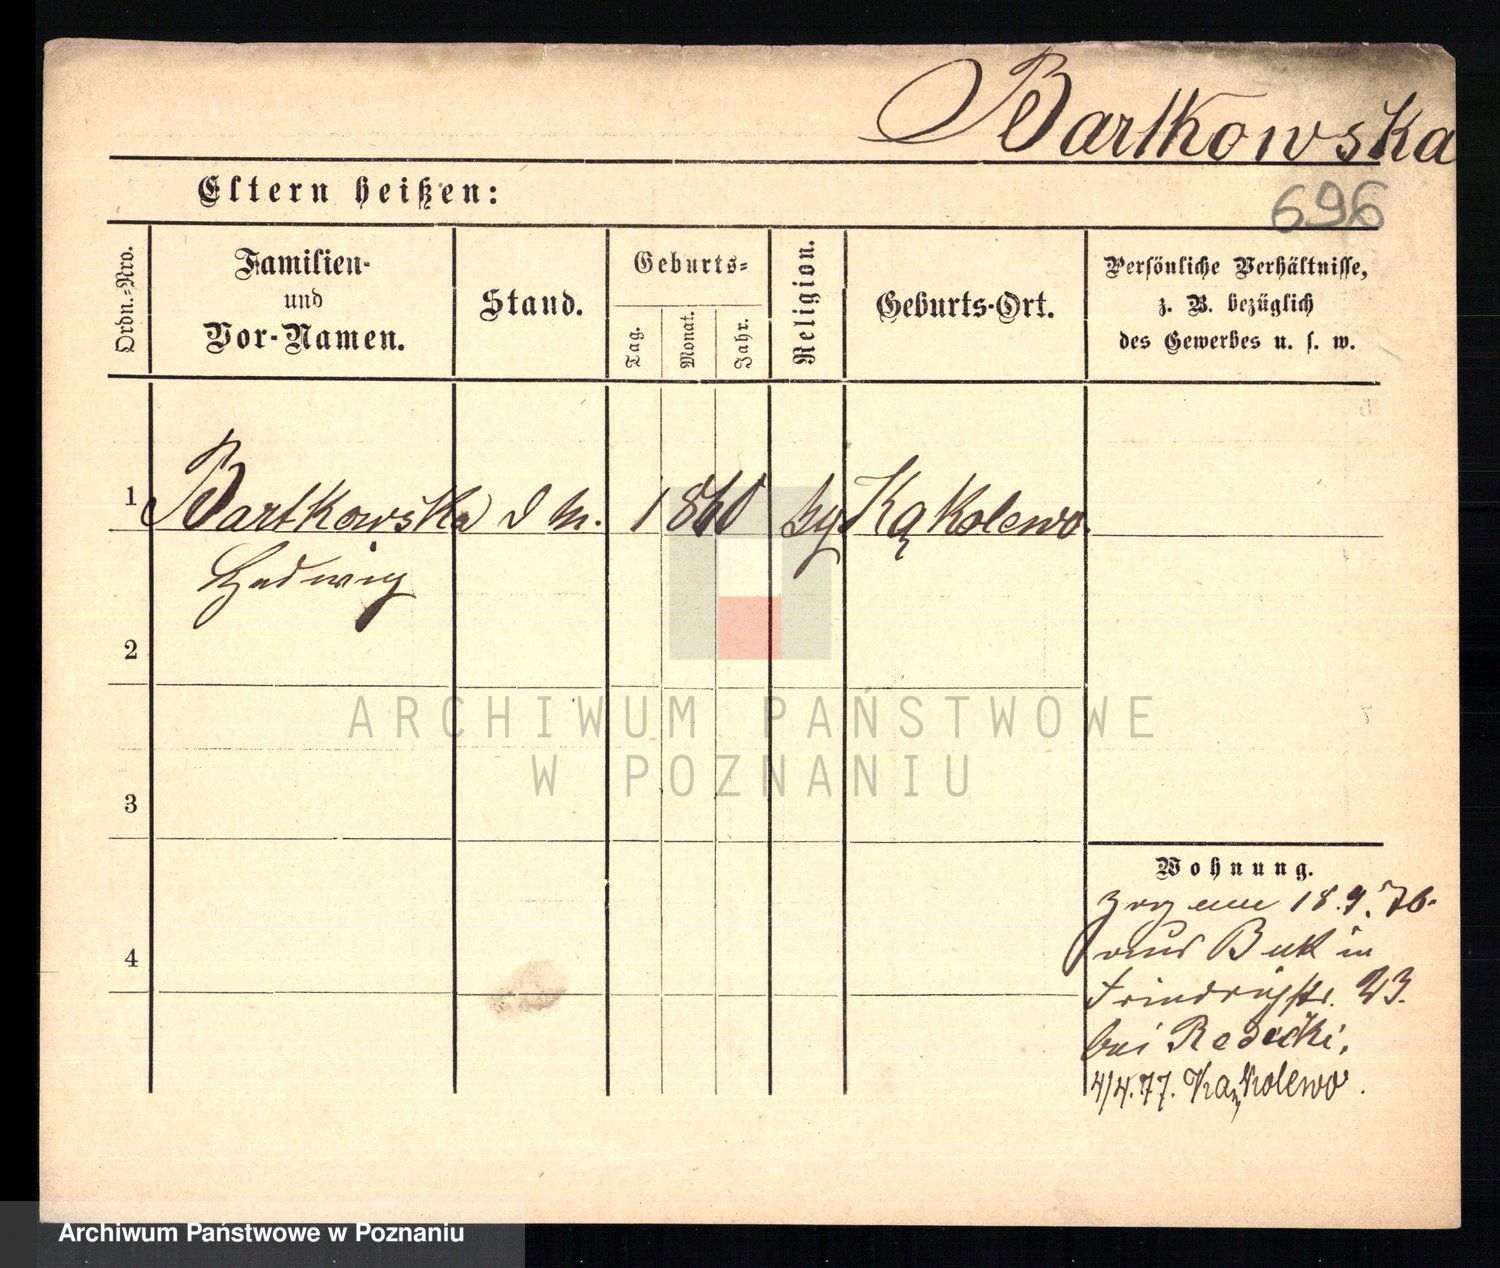 Bartkowska
696
Eltern heißen:
Ordn.-Nro.
Familien-
und
Vor-Namen.
Stand.
Geburts-
Tag.
Monat.
Jahr.
Religion.
Geburts-Ort.
Persönliche Verhältnisse,
z. B. bezüglich
des Gewerbes u. s. w.
1 Bartkowska d M. 1860 Kąkolewo.
Hedwig
2
3
4
Wohnung.
zog am 18.9.76.
aus Buk in
Friedrichstr. 23.
bei Radecki,
4/4.77. Kąkolewo.
ARCHIWUM PAŃSTWOWE
W POZNANIU
Archiwum Państwowe w Poznaniu